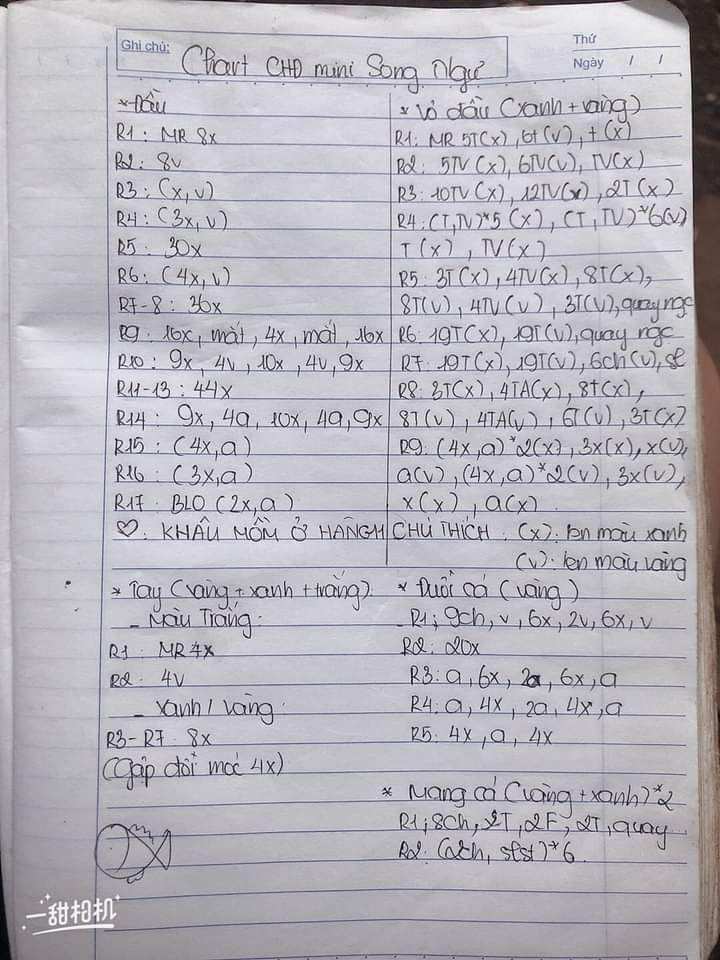 Ghi chú:
Thứ
Ngày / /
Chart CHĐ mini Song Ngư
* Đầu
R1: MR 8x
R2: 8v
R3: (x, v)
R4: (3x, v)
R5: 30x
R6: (4x, v)
R7-8: 36x
R9: 16x, mắt, 4x, mắt, 16x
R10: 9x, 4v, 10x, 4v, 9x
R11-13: 44x
R14: 9x, 4a, 10x, 4a, 9x
R15: (4x, a)
R16: (3x, a)
R17: BLO (2x, a)
♡: KHÂU MỒM Ở HÀNG 11
* Vỏ đầu (xanh + vàng)
R1: MR 5T(x), 6t(v), t(x)
R2: 5TV(x), 6TV(v), TV(x)
R3: 10TV(x), 12TV(v), 2T(x)
R4: (T, TV)*5(x), (T, TV)*6(v)
T(x), TV(x)
R5: 3T(x), 4TV(x), 8T(x),
8T(v), 4TV(v), 3T(v), quay ngc
R6: 19T(x), 19T(v), quay ngc
R7: 19T(x), 19T(v), 6ch(v), sl
R8: 3T(x), 4TA(x), 8t(x),
8T(v), 4TA(v), 6T(v), 3T(x)
R9: (4x, a)*2(x), 3x(x), x(v),
a(v), (4x, a)*2(v), 3x(v),
x(x), a(x)
CHÚ THÍCH: (x): len màu xanh
(v): len màu vàng
* Tay (vàng + xanh + trắng)
- Màu Trắng:
R1: MR 4x
R2: 4v
- Xanh / Vàng:
R3-R7: 8x
(Gập đôi móc 4x)
* Đuôi cá (vàng)
R1; 9ch, v, 6x, 2v, 6x, v
R2: 20x
R3: a, 6x, 2a, 6x, a
R4: a, 4x, 2a, 4x, a
R5: 4x, a, 4x
* Mang cá (vàng + xanh)*2
R1; 8ch, 2T, 2F, 2T, quay
R2: (2ch, slst)*6
一甜相机